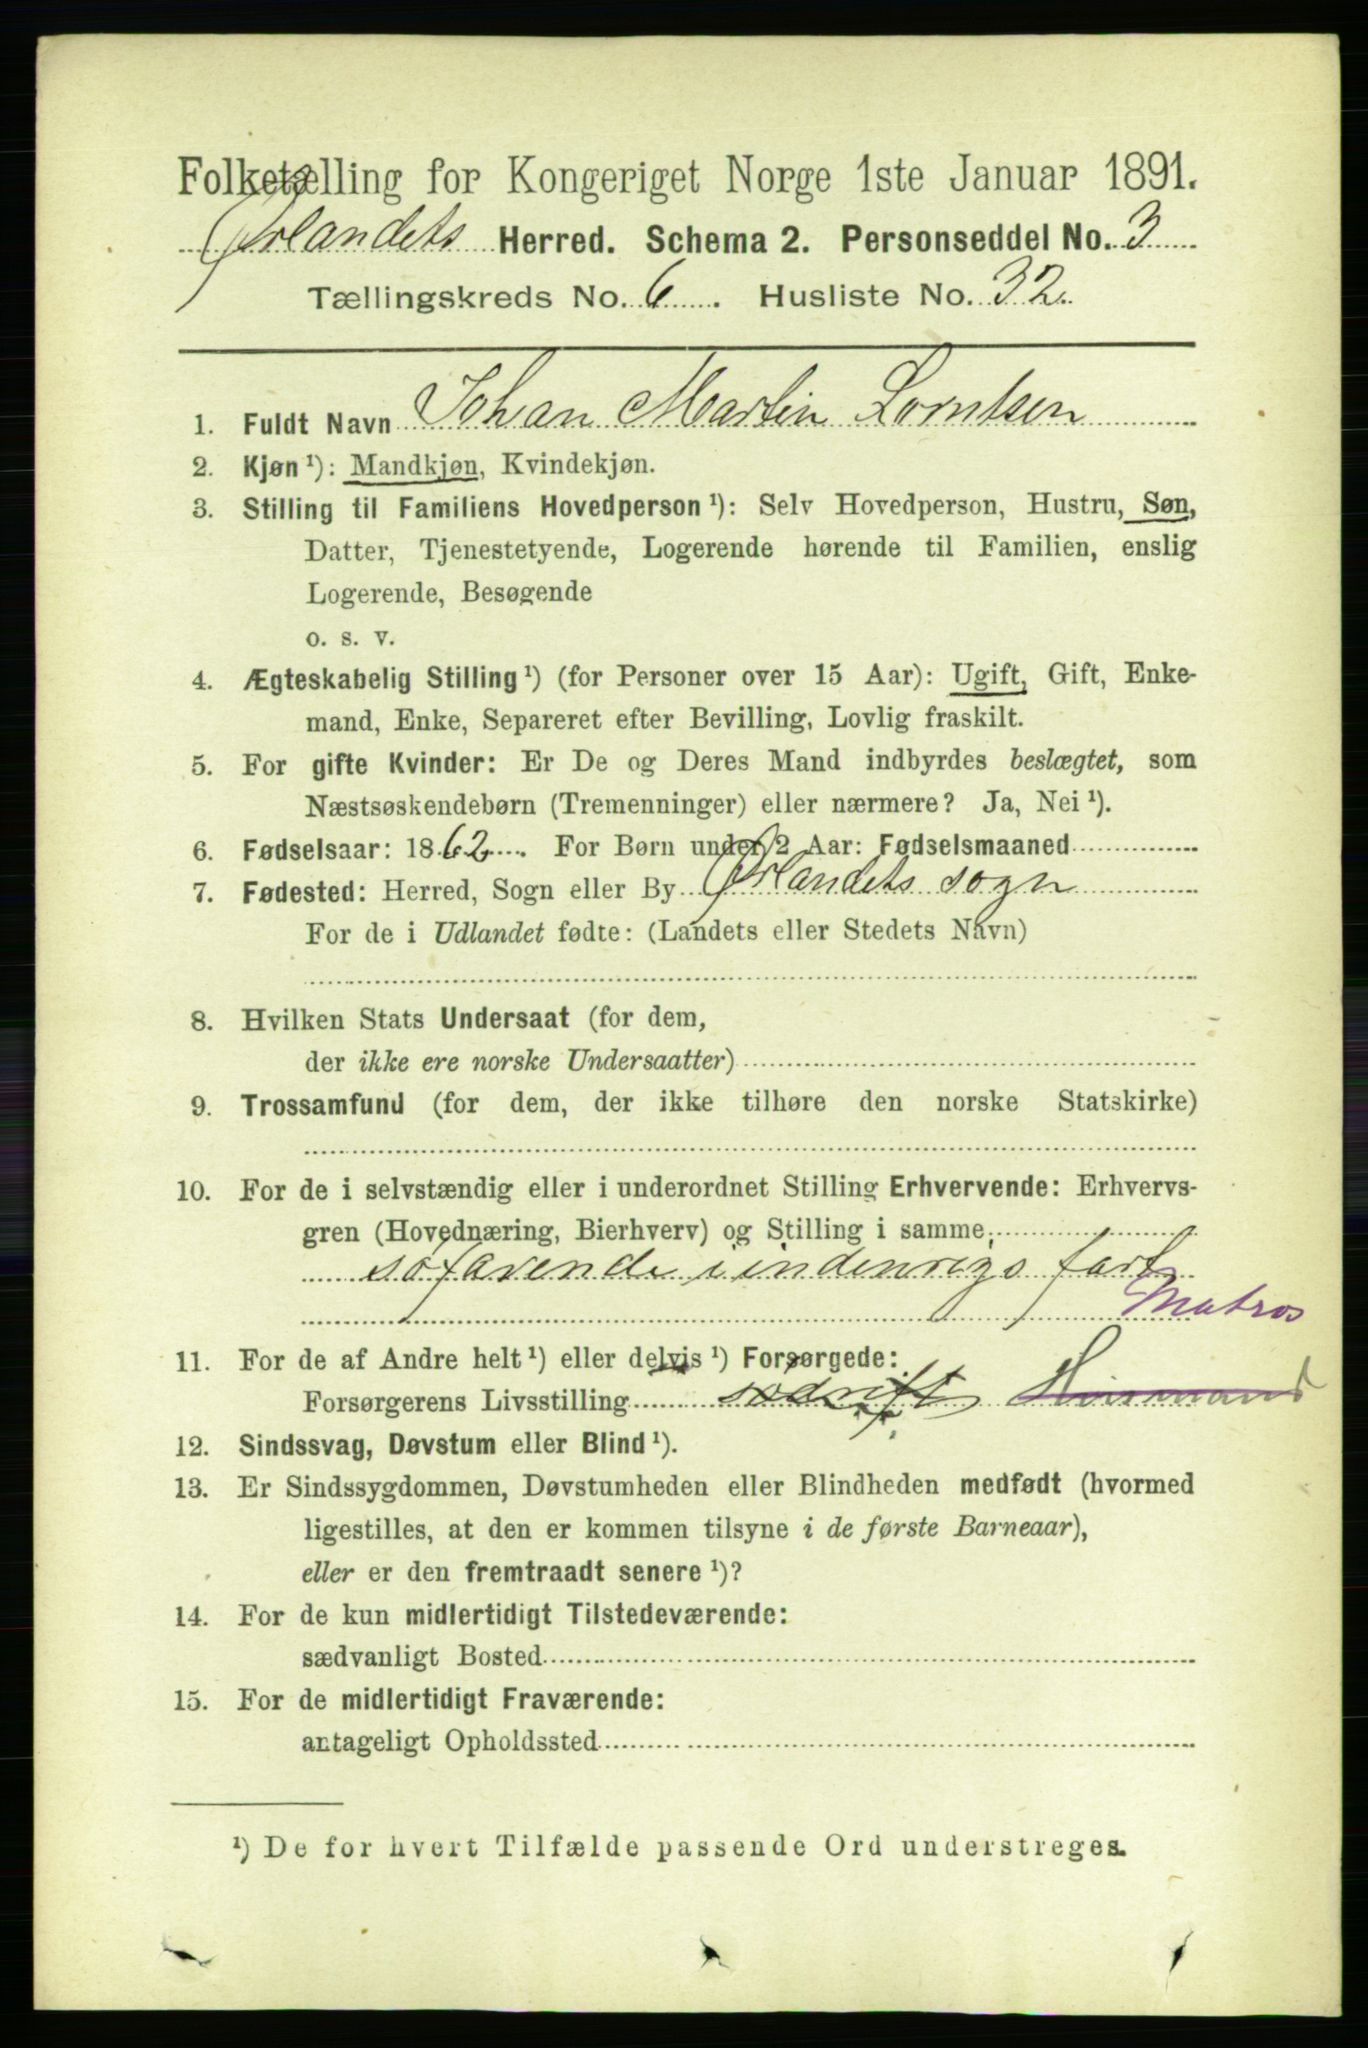 Folketælling for Kongeriget Norge 1ste Januar 1891.
Ørlandets Herred. Schema 2. Personseddel No. 3
Tællingskreds No. 6. Husliste No. 32.
1. Fuldt Navn Johan Martin Lorntsen
2. Kjøn ¹): Mandkjøn, Kvindekjøn.
3. Stilling til Familiens Hovedperson ¹): Selv Hovedperson, Hustru, Søn,
Datter, Tjenestetyende, Logerende hørende til Familien, enslig
Logerende, Besøgende
o. s. v.
4. Ægteskabelig Stilling ¹) (for Personer over 15 Aar): Ugift, Gift, Enke-
mand, Enke, Separeret efter Bevilling, Lovlig fraskilt.
5. For gifte Kvinder: Er De og Deres Mand indbyrdes beslægtet, som
Næstsøskendebørn (Tremenninger) eller nærmere? Ja, Nei ¹).
6. Fødselsaar: 1862. For Børn under 2 Aar: Fødselsmaaned
7. Fødested: Herred, Sogn eller By Ørlandets sogn
For de i Udlandet fødte: (Landets eller Stedets Navn)
8. Hvilken Stats Undersaat (for dem,
der ikke ere norske Undersaatter)
9. Trossamfund (for dem, der ikke tilhøre den norske Statskirke)
10. For de i selvstændig eller i underordnet Stilling Erhvervende: Erhvervs-
gren (Hovednæring, Bierhverv) og Stilling i samme.
søfarende i indenrigs fart
Matros
11. For de af Andre helt ¹) eller delvis ¹) Forsørgede:
Forsørgerens Livsstilling sødrift Husmand
12. Sindssvag, Døvstum eller Blind ¹).
13. Er Sindssygdommen, Døvstumheden eller Blindheden medfødt (hvormed
ligestilles, at den er kommen tilsyne i de første Barneaar),
eller er den fremtraadt senere ¹)?
14. For de kun midlertidigt Tilstedeværende:
sædvanligt Bosted
15. For de midlertidigt Fraværende:
antageligt Opholdssted
¹) De for hvert Tilfælde passende Ord understreges.